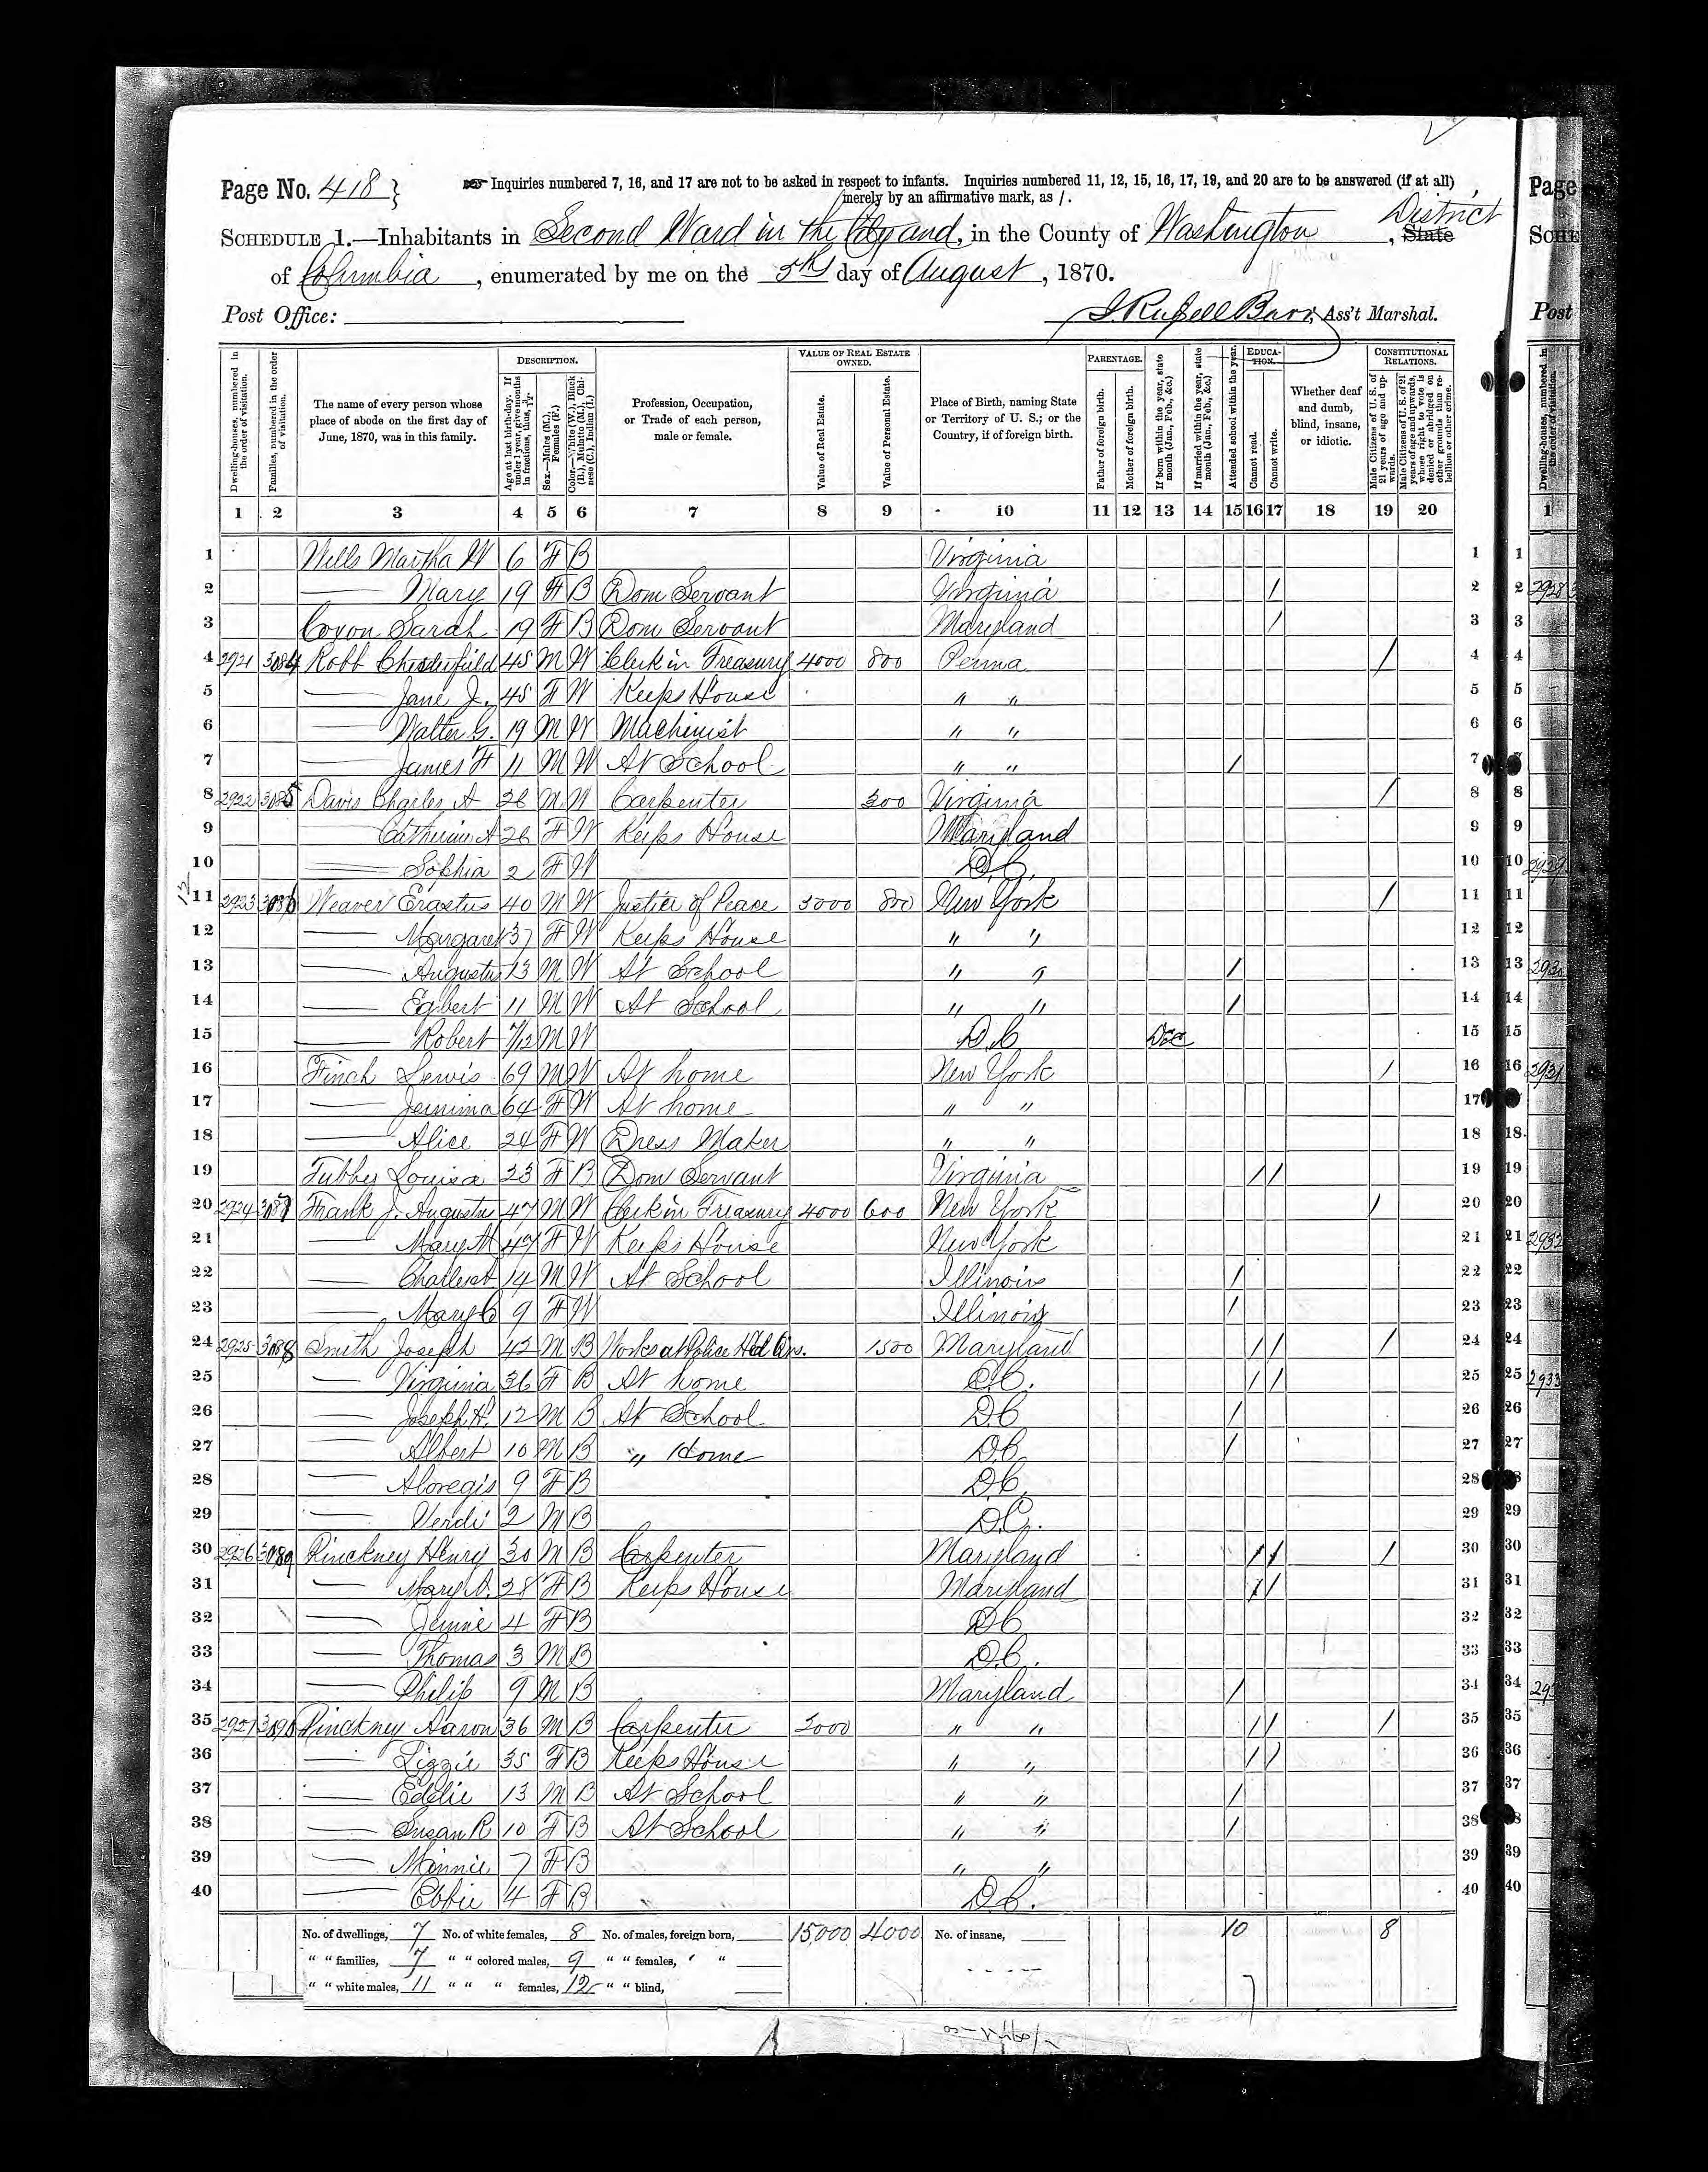 Page No. 418 } Inquiries numbered 7, 16, and 17 are not to be asked in respect to infants. Inquiries numbered 11, 12, 15, 16, 17, 19, and 20 are to be answered (if at all)
merely by an affirmative mark, as /.
SCHEDULE 1.—Inhabitants in Second Ward in the City and, in the County of Washington, State District
of Columbia, enumerated by me on the 5th day of August, 1870.
Post Office: Ass't Marshal.
Dwelling-houses, numbered in the order of visitation.
Families, numbered in the order of visitation.
The name of every person whose place of abode on the first day of June, 1870, was in this family.
DESCRIPTION.
Age at last birth-day. If under 1 year, give months in fractions, thus, 3/12.
Sex.—Males (M.), Females (F.)
Color.—White (W.), Black (B.), Mulatto (M.), Chinese (C.), Indian (I.)
Profession, Occupation, or Trade of each person, male or female.
VALUE OF REAL ESTATE OWNED.
Value of Real Estate.
Value of Personal Estate.
Place of Birth, naming State or Territory of U. S.; or the Country, if of foreign birth.
PARENTAGE.
Father of foreign birth.
Mother of foreign birth.
If born within the year, state month (Jan., Feb., &c.)
If married within the year, state month (Jan., Feb., &c.)
Attended school within the year.
EDUCATION.
Cannot read.
Cannot write.
Whether deaf and dumb, blind, insane, or idiotic.
CONSTITUTIONAL RELATIONS.
Male Citizens of U. S. of 21 years of age and upwards.
Male Citizens of U. S. of 21 years of age and upwards, whose right to vote is denied or abridged on other grounds than rebellion or other crime.
1 2 3 4 5 6 7 8 9 10 11 12 13 14 15 16 17 18 19 20
1 Wells Martha W 6 F B Virginia 1
2 Mary 19 F B Dom Servant Virginia / 2
3 Coxon Sarah 19 F B Dom Servant Maryland / 3
4 2921 3084 Robb Chesterfield 45 M W Clerk in Treasury 4000 800 Penna / 4
5 Jane J. 45 F W Keeps House " " 5
6 Walter G. 19 M W Machinist " " 6
7 James F 11 M W At School " " / 7
8 2922 3085 Davis Charles A 26 M W Carpenter 300 Virginia / 8
9 Catherine A 26 F W Keeps House Maryland 9
10 Sophia 2 F W D.C. 10
11 2923 3086 Weaver Erastus 40 M W Justice of Peace 3000 800 New York / 11
12 Margaret 37 F W Keeps House " " 12
13 Augustus 13 M W At School " " / 13
14 Egbert 11 M W At School " " / 14
15 Robert 7/12 M W D.C Dec 15
16 Finch Lewis 69 M W At home New York / 16
17 Jemima 64 F W At home " " 17
18 Alice 24 F W Dress Maker " " 18
19 Tubbs Louisa 23 F B Dom Servant Virginia / / 19
20 2924 3087 Frank J. Augustus 47 M W Clerk in Treasury 4000 600 New York / 20
21 Mary M 47 F W Keeps House New York 21
22 Charles A 14 M W At School Illinois / 22
23 Mary C 9 F W Illinois / 23
24 2925 3088 Smith Joseph 42 M B Works at Police Hd Qrs. 1500 Maryland / / / 24
25 Virginia 36 F B At home D.C. / / 25
26 Joseph H. 12 M B At School D.C / 26
27 Albert 10 M B " Home D.C. / 27
28 9 F B D.C. 28
29 Verdi 2 M B D.C. 29
30 2926 3089 Pinckney Henry 30 M B Carpenter Maryland / / / 30
31 Mary A. 28 F B Keeps House Maryland / / 31
32 Jennie 4 F B D.C 32
33 Thomas 3 M B D.C. 33
34 Philip 9 M B Maryland / 34
35 2927 3090 Pinckney Aaron 36 M B Carpenter 3000 " " / / / 35
36 Lizzie 35 F B Keeps House " " / / 36
37 Eddie 13 M B At School " " / 37
38 Susan R 10 F B At School " " / 38
39 Minnie 7 F B " " 39
40 Effie 4 F B D.C. 40
No. of dwellings, 7 No. of white females, 8 No. of males, foreign born, 15,000 4000 No. of insane, 10 8
" " families, 7 " " colored males, 9 " " females, " "
" " white males, 11 " " " females, 12 " " blind,
Page
SCHE
Post
1
2928
2929
2930
2931
2932
2933